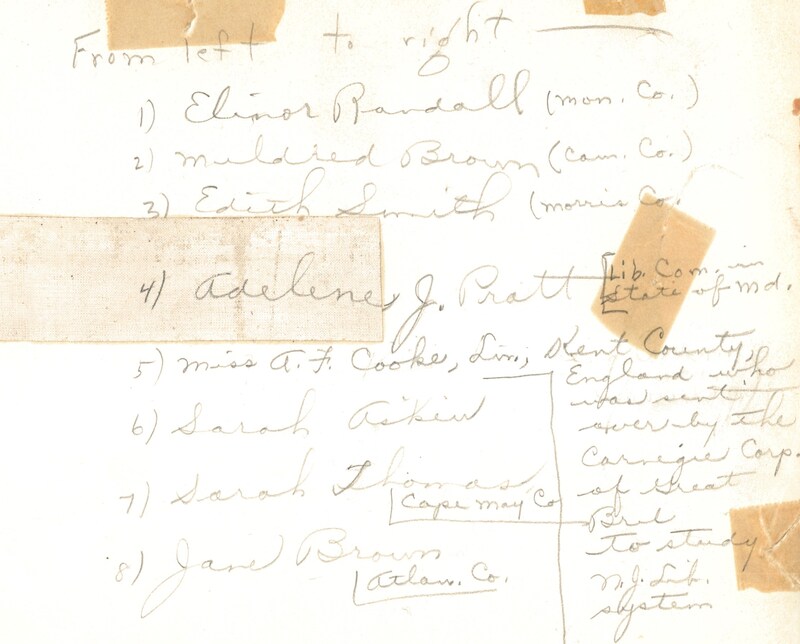 From left to right
1) Elinor Randall (Mon. Co.)
2) Mildred Brown (Cam. Co.)
3) Edith Smith (Morris Co.
4) Adelene J. Pratt [Lib. Com. in
State of Md.
5) Miss A. F. Cooke, Lin., Kent County,
England who
was sent
over by the
Carnegie Corp.
of Great
Brit
to study
N.J. Lib.
system
6) Sarah Askew
7) Sarah Thomas
Cape May Co
8) Jane Brown
Atlan. Co.